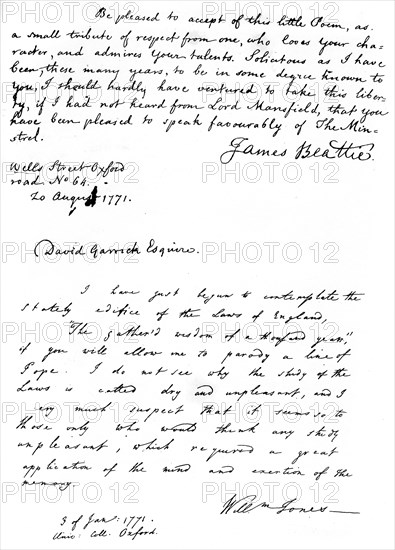 Be pleased to accept of this little Poem, as
a small tribute of respect from one, who loves your cha-
racter, and admires your talents. Solicitous as I have
been, these many years, to be in some degree known to
you, I should hardly have ventured to take this liber-
ty, if I had not heard from Lord Mansfield, that you
have been pleased to speak favourably of The Min-
strel.
James Beattie.
Wells Street Oxford
road No 64.
20 August 1771.
David Garrick Esquire.
I have just begun to contemplate the
stately edifice of the Laws of England,
"The gather'd wisdom of a thousand years,"
if you will allow me to parody a line of
Pope. I do not see why the study of the
Laws is called dry and unpleasant, and I
very much suspect that it seems so to
those only who would think any study
unpleasant, which required a great
application of the mind and exertion of the
memory.
Will m Jones
3 of Jany. 1771.
Univ: Coll. Oxford.
PHOTO 12